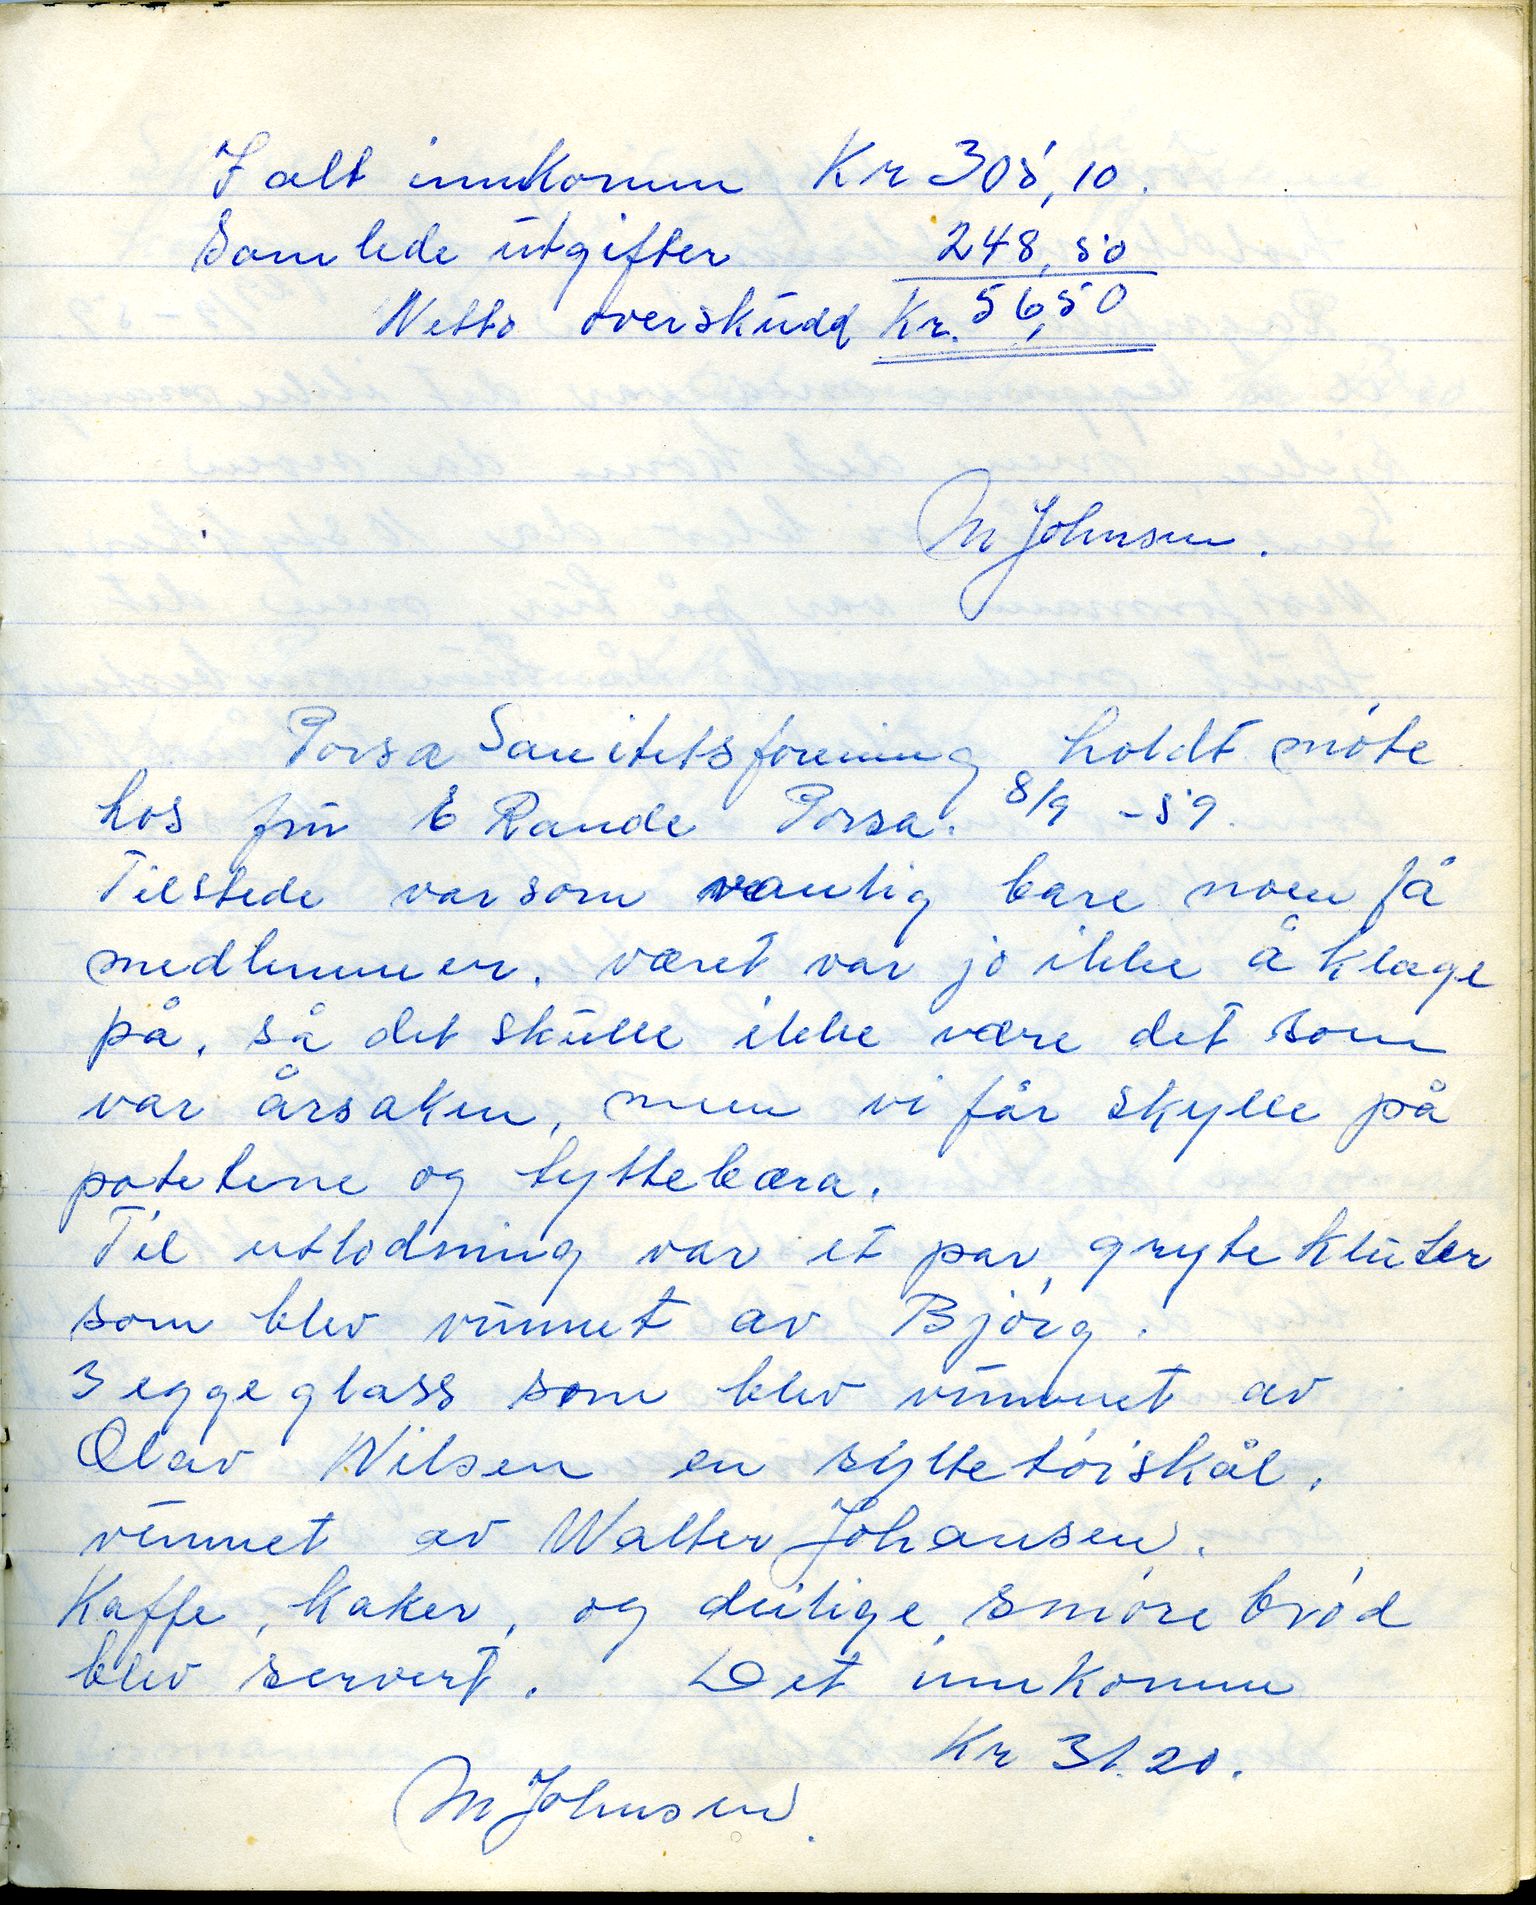 I alt innkomm Kr 305,10.
Samlede utgifter 248,50
Netto overskudd Kr. 56,50
M Johnsen.
Porsa Sanitetsforening holdt møte
hos fru E Rande Porsa. 8/9 - 59.
Tilstede var som vanlig bare noen få
medlemmer. været var jo ikke å klage
på. så det skulle ikke være det som
var årsaken, men vi får skylle på
potetene og tyttebæra.
Til utlodning var et par grytekluter
som blev vunnet av Bjørg.
3 eggeglass som blev vunnet av
Olav Nilsen en syltetøiskål.
vunnet av Walter Johansen.
Kaffe, kaker, og deilige smørebrød
blev servert. Det innkomm
Kr 31.20.
M Johnsen.